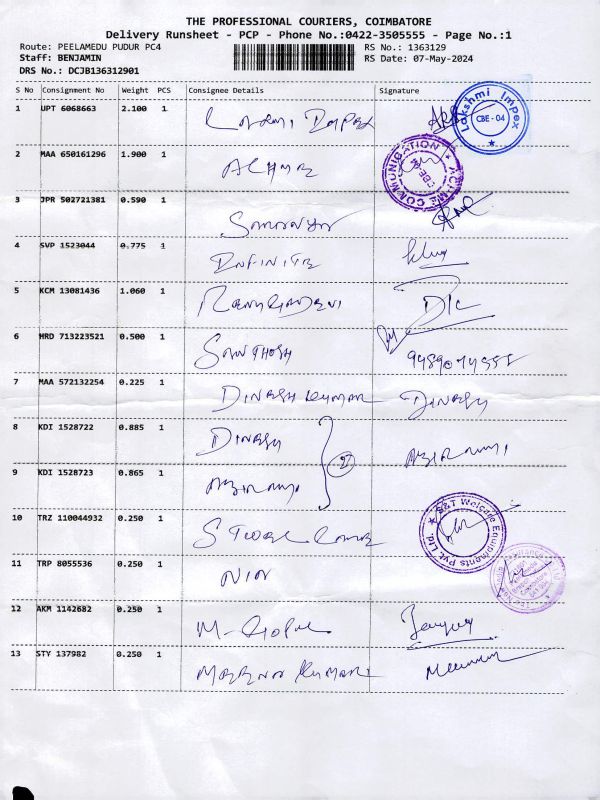 THE PROFESSIONAL COURIERS, COIMBATORE
Delivery Runsheet - PCP - Phone No.:0422-3505555 - Page No.:1
Route: PEELAMEDU PUDUR PC4 RS No.: 1363129
Staff: BENJAMIN RS Date: 07-May-2024
DRS No.: DCJB136312901
S No Consignment No Weight PCS Consignee Details Signature
1 UPT 6068663 2.100 1 Lakshmi Impex
CBE - 04
2 MAA 650161296 1.900 1
COMMUNICATION
3 JPR 502721381 0.590 1
4 SVP 1523044 0.775 1 INFINITE
5 KCM 13081436 1.060 1
6 HRD 713223521 0.500 1 SANTHOSH
7 MAA 572132254 0.225 1 DINESH KUMAR DINESH
8 KDI 1528722 0.885 1 DINESH
9 KDI 1528723 0.865 1
10 TRZ 110044932 0.250 1 S&T Welcare Equipments Pvt Ltd.
11 TRP 8055536 0.250 1 NIA
12 AKM 1142682 0.250 1 M. GOPAL
13 STY 137982 0.250 1